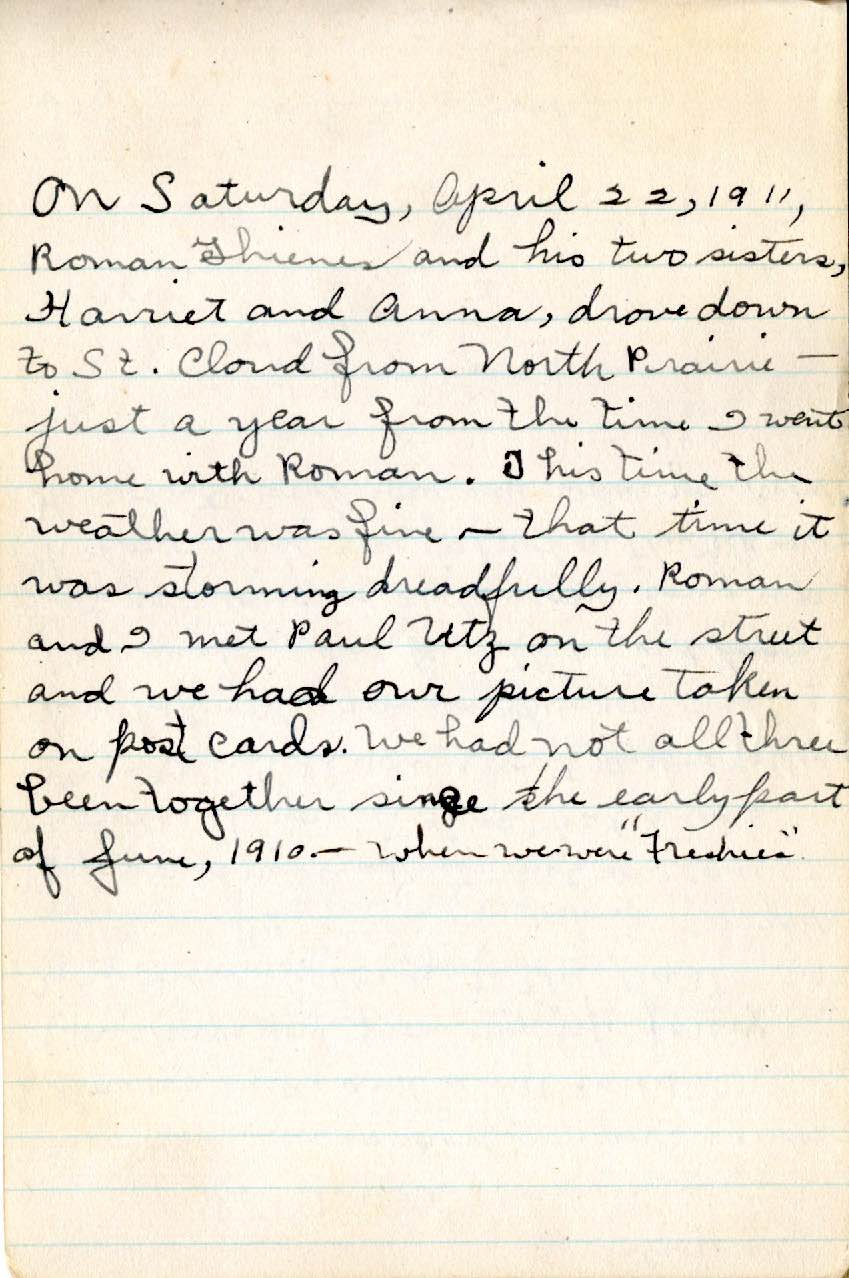 On Saturday, April 22, 1911,
Roman Thienes and his two sisters,
Harriet and Anna, drove down
to St. Cloud from North Prairie —
just a year from the time I went
home with Roman. This time the
weather was fine — that time it
was storming dreadfully. Roman
and I met Paul Utz on the street
and we had our picture taken
on post cards. We had not all three
been together since the early part
of June, 1910 — when we were "Freshies".